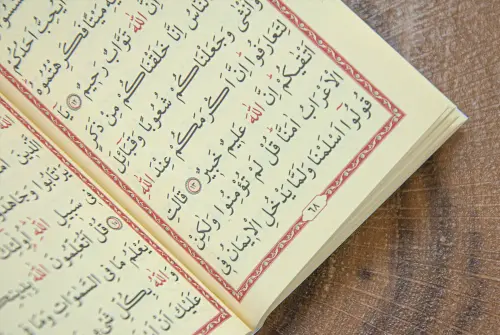 اَيُحِبُّ اَحَدُكُمْ
مَيْتًا فَكَرِهْتُمُوهُ
اِنَّ اللّٰهَ تَوَّابٌ رَحِيمٌ ﴿١٢﴾ يَٓا
النَّاسُ اِنَّا خَلَقْنَاكُمْ مِنْ ذَكَرٍ
وَاُنْثٰى وَجَعَلْنَاكُمْ شُعُوبًا وَقَبَٓائِلَ
لِتَعَارَفُوا اِنَّ اَكْرَمَكُمْ عِنْدَ اللّٰهِ
اَتْقٰيكُمْ اِنَّ اللّٰهَ عَلِيمٌ خَبِيرٌ ﴿١٣﴾ قَالَتِ
الْاَعْرَابُ اٰمَنَّا قُلْ لَمْ تُؤْمِنُوا وَلٰكِنْ
قُولُٓوا اَسْلَمْنَا وَلَمَّا يَدْخُلِ الْا۪يمَانُ فِي
٦٨
الَّذِينَ
يَرْتَابُوا وَجَاهَدُوا
فِي سَبِيلِ اللّٰهِ اُولٰٓئِكَ
قُلْ اَتُعَلِّمُونَ اللّٰهَ
يَعْلَمُ مَا فِي السَّمٰوَاتِ وَمَا
وَاللّٰهُ بِكُلِّ شَيْءٍ
عَلَيْكَ اَنْ